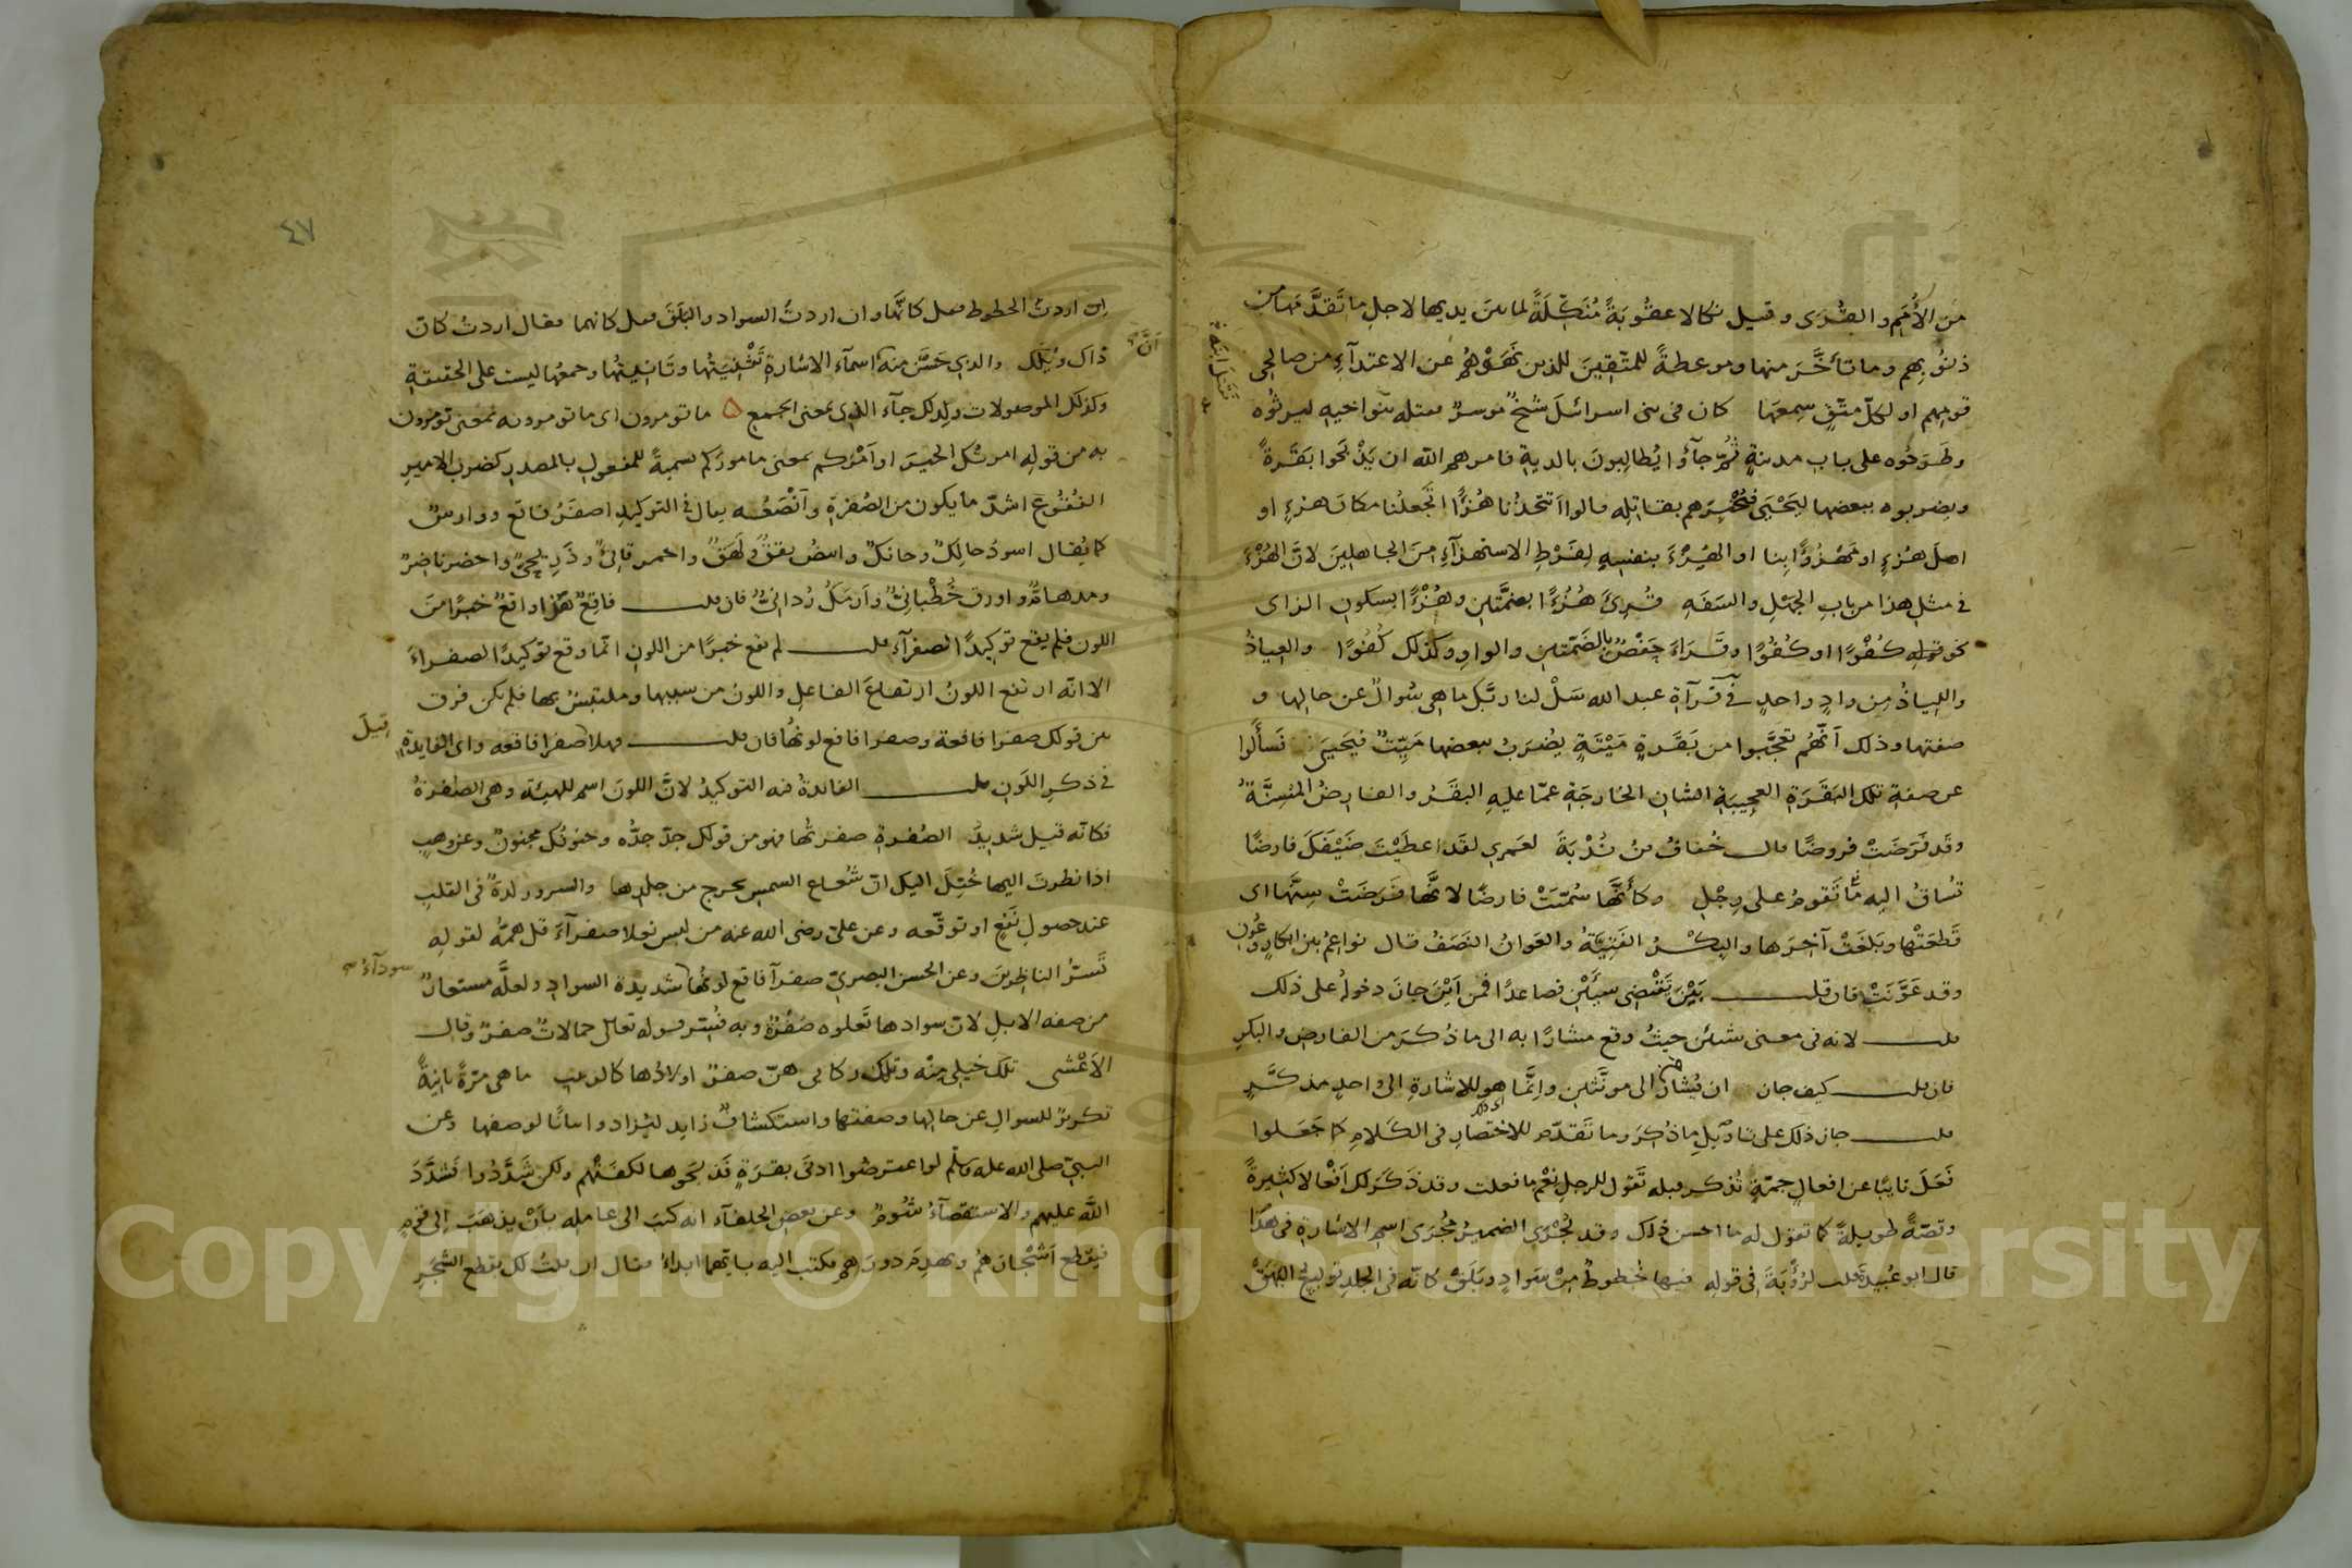 من الأمم والقرى وقيل نكالا عقوبة منكلة لما بين يديها لاجل ما تقدمها من
ذنوبهم وما تأخر منها وموعظة للمتقين للذين نهوهم عن الاعتداء من صالحي
قومهم او لكل متق سمعها كان في بني اسرائل شيخ موسر فقتله بنو اخيه ليرثوه
وطرحوه على باب مدينة ثم جاؤا يطالبون بالدية فامرهم الله ان يذبحوا بقرة
ويضربوه ببعضها ليحيى فيخبرهم بقاتله قالوا اتتخذنا هزؤا اتجعلنا مكان هزء او
اهل هزء او مهزوءا بنا او الهزء بنفسه لفرط الاستهزاء من الجاهلين لان الهزء
في مثل هذا من باب الجهل والسفه قرئ هزءا بضمتين وهزءا بسكون الزاى
نحو قوله كفؤا او كفوا وقراءة حفص بالضمتين والواو وكذلك كفوا والعياذ
واللياذ من واد واحد في قرآة عبد الله سل لنا ربك ما هي سؤال عن حالها و
صفتها وذلك أنهم تعجبوا من بقرة ميتة يضرب ببعضها ميت فيحيى فسألوا
عن صفة تلك البقرة العجيبة الشان الخارجة عما عليه البقر والفارض المسنة
وقد فرضت فروضا قال خفاف بن ندبة لعمري لقد اعطيت ضيفك فارضا
تساق اليه ما تقوم على رجل وكأنها سميت فارضا لانها فرضت سنها اى
قطعتها وبلغت آخرها والبكر الفتية والعوان النصف قال نواعم بين ابكار وعون
وقد عونت فان قلت بين يقتضي شيئين فصاعدا فمن اين جاز دخوله على ذلك
قلت لانه في معنى شيئين حيث وقع مشارا به الى ما ذكر من الفارض والبكر
فان قلت كيف جاز ان يشار الى مونثين وانما هو للاشارة الى واحد مذكر
قلت جاز ذلك على تاويل ما ذكر وما تقدم للاختصار في الكلام كما جعلوا
فعل نايبا عن افعال جمة تذكر قبله تقول للرجل نعم ما فعلت وقد ذكر لك افعالا كثيرة
وقصة طويلة كما تقول له ما احسن ذلك وقد يجرى الضمير مجرى اسم الاشارة في هذا
قال ابو عبيدة قلت لرؤبة في قوله فيها خطوط من سواد وبلق كانه في الجلد توليع البهق
٤٧
ان اردت الخطوط فقل كانها وان اردت السواد والبلق فقل كانهما فقال اردت كان
ذاك ويلك والذي حسن منه ان اسماء الاشارة تثنيتها وتانيثها وجمعها ليست على الحقيقة
وكذلك الموصولات ولذلك جاء الذي بمعنى الجمع ما تومرون اى ما تومرونه بمعنى تومرون
به من قوله امرتك الخير او امركم بمعنى ماموركم تسمية للمفعول بالمصدر كضرب الامير
الفقوع اشد ما يكون من الصفرة وانصعه يقال في التوكيد اصفر فاقع ووارس
كما يقال اسود حالك وحانك وابيض يقق ولهق واحمر قانئ وذريحي واخضر ناضر
ومدهام واورق خطباني وارمك رداني فان قلت فاقع هنا واقع خبرا من
اللون فلم يقع توكيدا لصفراء قلت لم يقع خبرا من اللون انما وقع توكيدا لصفراء
الا انه ارتفع اللون ارتفاع الفاعل واللون من سببها وملتبس بها فلم يكن فرق
بين قولك صفرا فاقعة وصفرا فاقع لونها فان قلت فهلا قيل صفرا فاقعه واى الفايدة
في ذكر اللون قلت الفائدة فيه التوكيد لان اللون اسم للهيئة وهي الصفرة
فكانه قيل شديد الصفرة صفرتها فهو من قولك جد جده وجنونك مجنون وعن وهب
اذا نظرت اليها خيل اليك ان شعاع الشمس يخرج من جلدها والسرور لذة في القلب
عند حصول نفع او توقعه وعن علي رضى الله عنه من لبس نعلا صفرآء قل همه لقوله
تسر الناظرين وعن الحسن البصري صفرآ فاقع لونها سودآء شديدة السواد ولعله مستعار
من صفه الابل لان سوادها تعلوه صفرة وبه فسر قوله تعالى جمالات صفر وقال
الاعشى تلك خيلي منه وتلك ركابي هن صفر اولادها كالزبيب ما هي مرة ثانية
تكرير للسوال عن حالها وصفتها واستكشاف زايد ليزدادوا بيانا لوصفها وعن
النبي صلى الله عليه وسلم لو اعترضوا ادنى بقرة فذبحوها لكفتهم ولكن شددوا فشدد
الله عليهم والاستقصآء شوم وعن بعض الخلفآء انه كتب الى عامله بان يذهب الى قوم
فيقطع اشجارهم ويهدم دورهم فكتب اليه بايهما ابدا فقال ان قلت لك بقطع الشجر